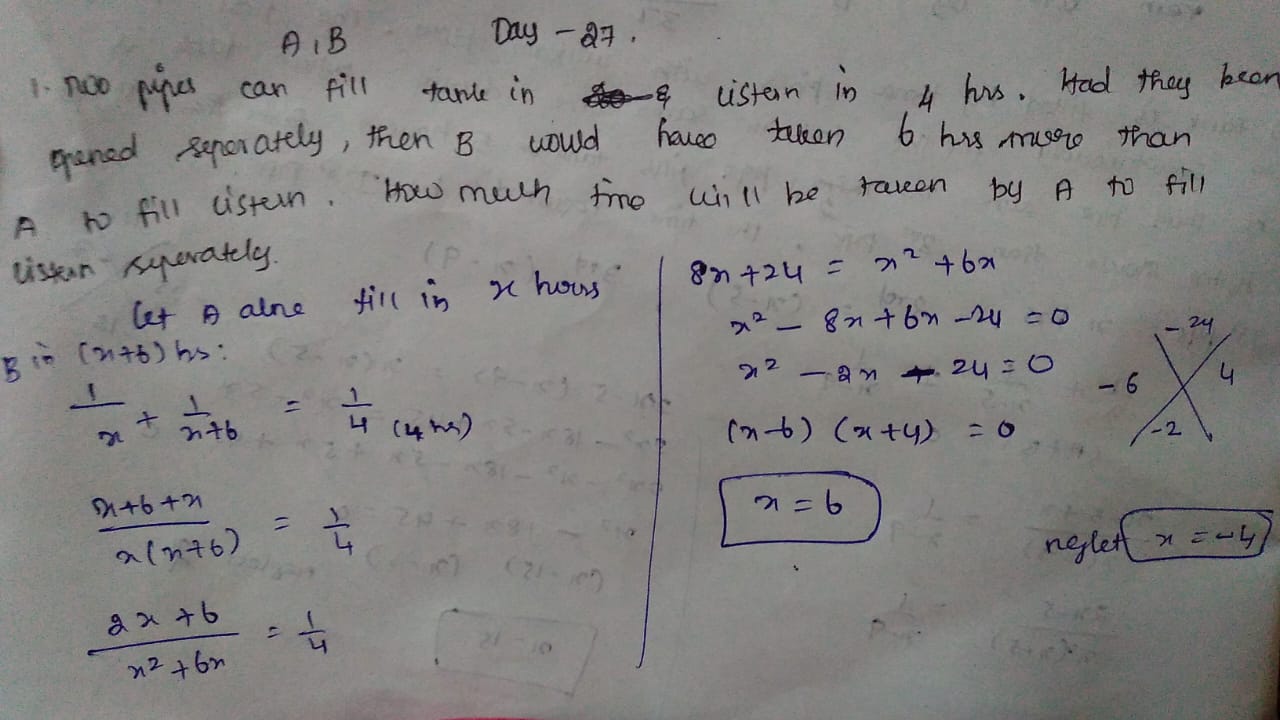 A, B Day - 27.
1. Two pipes can fill tank in & cistern in 4 hrs. Had they been
opened seperately, then B would have taken 6 hrs more than
A to fill cistern. How much time will be taken by A to fill
cistern seperately.
let A alne fill in x hours
B in (x+6) hs:
1/x + 1/x+6 = 1/4 (4 hrs)
x+6+x / x(x+6) = 1/4
2x+6 / x²+6x = 1/4
8x+24 = x²+6x
x² - 8x+6x-24 = 0
x² - 2x - 24 = 0
(x-6) (x+4) = 0
x = 6
-24
-6 4
-2
neglet x = -4